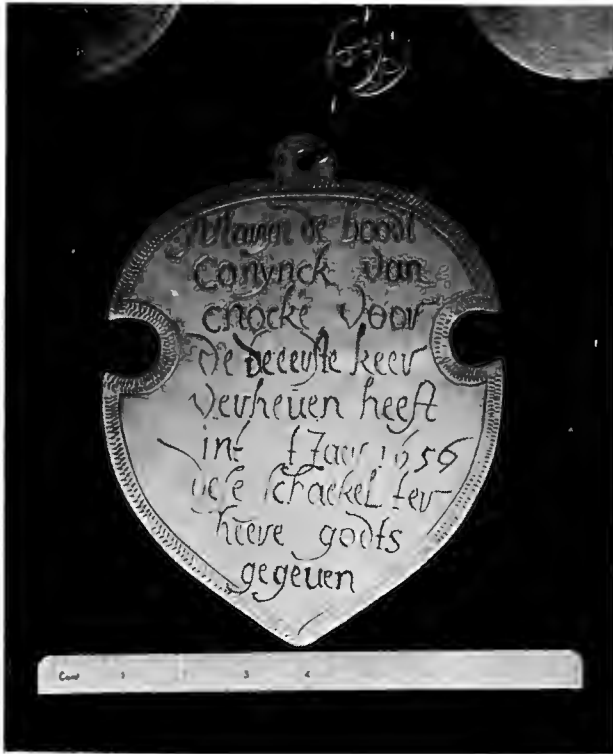 de hoodt
Conynck van
cnocke voor
de deerste keer
verheuen heeft
int tJaer 1656
dese schackel ter
heere godts
gegeuen
Cent 1 2 3 4